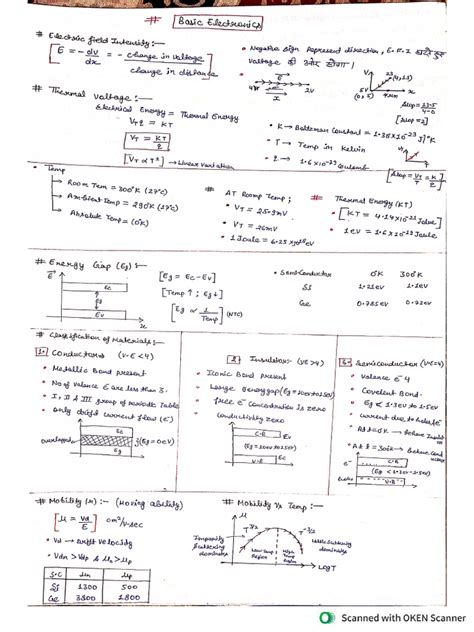 # Basic Electronics
# Electric field Intensity :-
[E = -dv/dx = - change in voltage / change in distance]
• Negative Sign Represent direction, E.F.I
voltage की ओर होगा।
4V 2V
# Thermal Voltage :-
Electrical Energy = Thermal Energy
VTq = KT
VT = KT/q
[VT ∝ T] → Linear Variation
• K → Boltzmann Constant = 1.38×10⁻²³ J/°K
• T → Temp in Kelvin
• q → 1.6×10⁻¹⁹ Coulomb
[Slope = VT/T = K/q]
• Temp
→ Room Tem = 300°K (27°C)
→ Ambient Temp = 290°K (17°C)
→ Absolute Temp = (0°K)
# AT Room Temp ;
• VT = 25.9mV
• VT ≈ 26mV
• 1 Joule = 6.25×10¹⁸ eV
# Thermal Energy (KT)
• [KT = 4.14×10⁻²¹ Joule]
• 1eV = 1.6×10⁻¹⁹ Joule
# Energy Gap (Eg) :-
E
Ec
Eg
Ev
x
[Eg = Ec - Ev]
[Temp ↑ ; Eg ↓]
[Eg ∝ 1/Temp] (NTC)
• Semiconductor 0°K 300°K
Si 1.21eV 1.1eV
Ge 0.785eV 0.72eV
# Classification of Materials :-
1. Conductors (V.E <4)
• Metallic Bond present
• No of valance E are less than 3.
• I, II & III group of periodic Table
• only drift current flow (e⁻)
Overlapped
Ec
(Eg = 0eV)
2. Insulator :- (VE >4)
• Ionic Bond present
• Large Energy gap (Eg =
• free e⁻ Concentration is zero
• Conductivity zero
C.B Ev
V.B Ec
Semiconductor (VE=4)
• Valance e⁻ 4
• Covalent Bond.
• Eg < 1.3eV to 1.5eV
• Current due to hole & e⁻
• At 0°K → Behave Insulator
• At 300°K → Behave conductor
e⁻
C.B
V.B
hole
# Mobility (μ) :- (Moving ability)
[μ = Vd/E] cm²/V-sec
• Vd → drift velocity
• Vdn > Vdp & μn > μp
S.C μn μp
Si 1300 500
Ge 3800 1800
# Mobility Vs Temp :-
μ
T^3/2 T^-3/2
Impurity Scattering dominates
Low Temp Region
High Temp Region
Lattice Scattering dominates
LogT
Scanned with OKEN Scanner